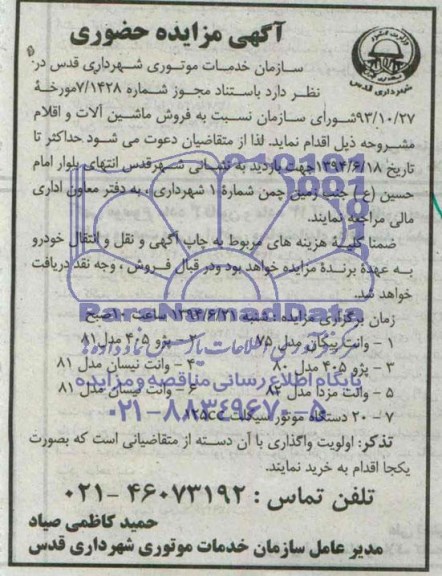 آگهی مزایده حضوری
شهرداری قدس
سازمان خدمات موتوری شهرداری قدس در
نظر دارد باستناد مجوز شماره ۷/۱۴۲۸مورخه
۹۳/۱۰/۲۷شورای سازمان نسبت به فروش ماشین آلات و اقلام
مشروحه ذیل اقدام نماید. لذا از متقاضیان دعوت می شود حداکثر تا
تاریخ ۱۳۹۴/۶/۱۸جهت بازدید به نشانی شهرقدس انتهای بلوار امام
حسین (ع) جنب زمین چمن شمارۀ ۱ شهرداری، به دفتر معاون اداری
مالی مراجعه نمایند.
ضمنا کلیۀ هزینه های مربوط به چاپ آگهی و نقل و انتقال خودرو
به عهدۀ برندۀ مزایده خواهد بود ودر قبال فروش ، وجه نقد دریافت
خواهد شد.
زمان برگزاری مزایده : شنبه ۱۳۹۴/۶/۲۱ ساعت ۱۰صبح
۱ - وانت پیکان مدل ۷۵ ۲ - پژو ۴۰۵ مدل ۸۱
۳ - پژو ۴۰۵ مدل ۸۰ ۴ - وانت نیسان مدل ۸۱
۵ - وانت مزدا مدل ۸۲ ۶ - وانت نیسان مدل ۸۱
۷ - ۲۰ دستگاه موتور سیکلت ۱۲۵cc
تذکر: اولویت واگذاری با آن دسته از متقاضیانی است که بصورت
یکجا اقدام به خرید نمایند.
تلفن تماس : ۴۶۰۷۳۱۹۲ -۰۲۱
حمید کاظمی صیاد
مدیر عامل سازمان خدمات موتوری شهرداری قدس
ParsNamadData
پایگاه اطلاع رسانی مناقصه و مزایده
۰۲۱-۸۸۳۴۹۶۷۰-۵